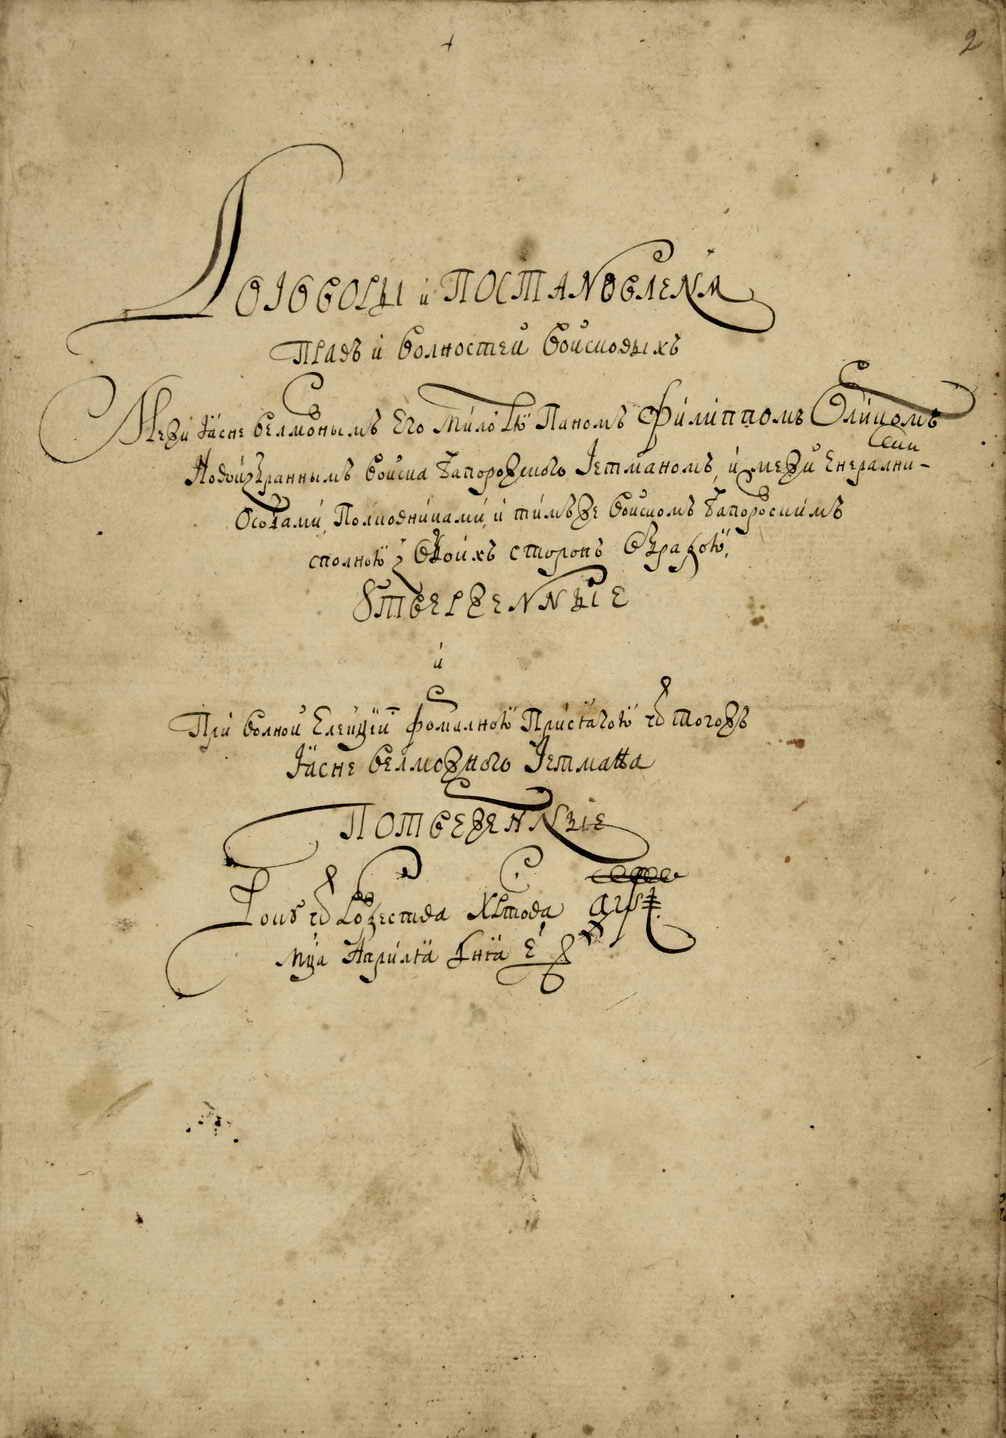 2
Договоры и Постановленя
Правъ и волностей войсковыхъ
Межи Ясне велможнымъ Его Милостю Паномъ Филиппомъ Орликомъ
Новоизбраннымъ войска Запорожского Гетманомъ, и межи Енерални-
ми
Особами, Полковниками, и тимъже войскомъ Запорозскимъ
сполною з обоихъ сторонъ обрадою,
Ѹтверженные
и
При волной Елекціи формалною Присягою ѿ тогожъ
Ясне велможного Гетмана
Потверженные
Року ѿ Рожества Христова
Мца Априля дня е҃